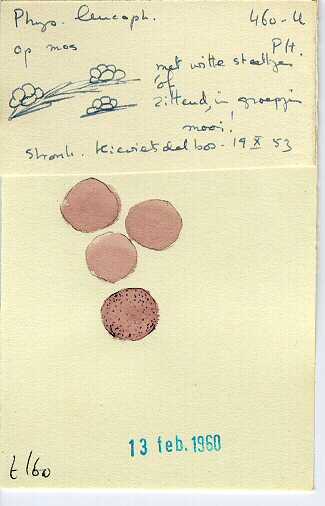 Phys. leucoph. 460-U
op mos P.H.
met witte steeltjes
of
zittend, in groepjes
mooi!
stronk. Kievietsdel bos. 19 X 53
13 feb. 1960
t 160